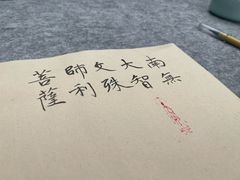 南無
大智
文殊
師利
菩薩